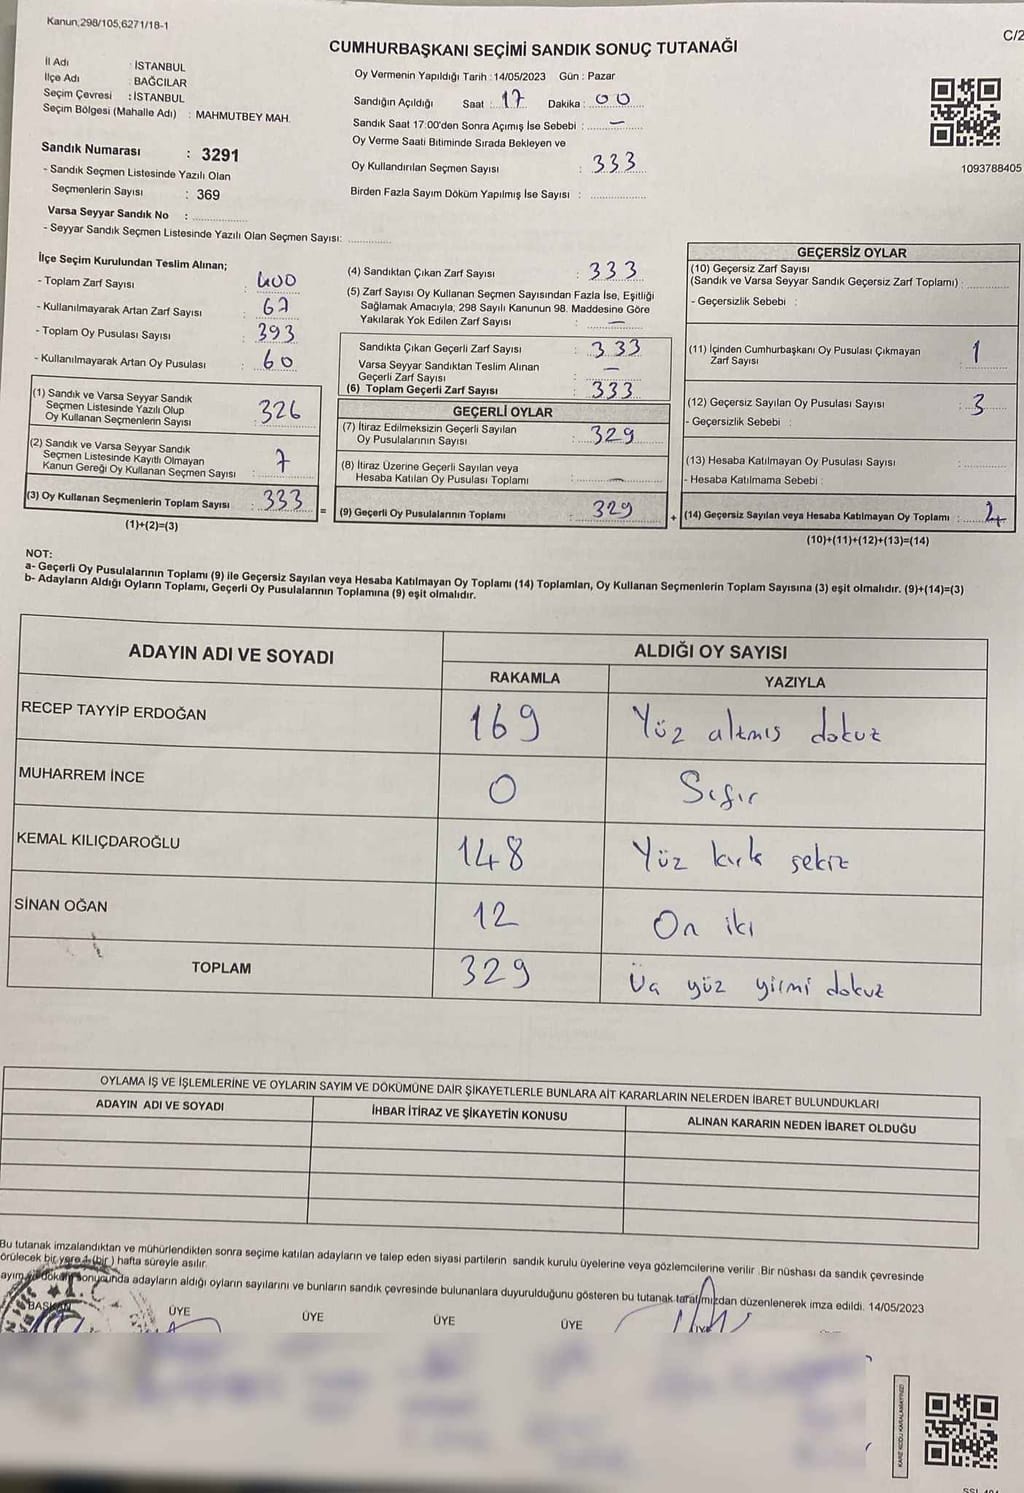 Kanun,298/105,6271/18-1
C/2
CUMHURBAŞKANI SEÇİMİ SANDIK SONUÇ TUTANAĞI
İl Adı : İSTANBUL
İlçe Adı : BAĞCILAR
Seçim Çevresi : İSTANBUL
Seçim Bölgesi (Mahalle Adı) : MAHMUTBEY MAH.
Sandık Numarası : 3291
- Sandık Seçmen Listesinde Yazılı Olan
Seçmenlerin Sayısı : 369
Varsa Seyyar Sandık No :
- Seyyar Sandık Seçmen Listesinde Yazılı Olan Seçmen Sayısı:
Oy Vermenin Yapıldığı Tarih : 14/05/2023 Gün : Pazar
Sandığın Açıldığı Saat : 17 Dakika : 00
Sandık Saat 17:00'den Sonra Açımış İse Sebebi : —
Oy Verme Saati Bitiminde Sırada Bekleyen ve
Oy Kullandırılan Seçmen Sayısı : 333
Birden Fazla Sayım Döküm Yapılmış İse Sayısı :
1093788405
İlçe Seçim Kurulundan Teslim Alınan;
- Toplam Zarf Sayısı : 400
- Kullanılmayarak Artan Zarf Sayısı : 67
- Toplam Oy Pusulası Sayısı : 393
- Kullanılmayarak Artan Oy Pusulası : 60
(1) Sandık ve Varsa Seyyar Sandık
Seçmen Listesinde Yazılı Olup
Oy Kullanan Seçmenlerin Sayısı : 326
(2) Sandık ve Varsa Seyyar Sandık
Seçmen Listesinde Kayıtlı Olmayan
Kanun Gereği Oy Kullanan Seçmen Sayısı : 7
(3) Oy Kullanan Seçmenlerin Toplam Sayısı : 333 =
(1)+(2)=(3)
(4) Sandıktan Çıkan Zarf Sayısı : 333
(5) Zarf Sayısı Oy Kullanan Seçmen Sayısından Fazla İse, Eşitliği
Sağlamak Amacıyla, 298 Sayılı Kanunun 98. Maddesine Göre
Yakılarak Yok Edilen Zarf Sayısı : —
Sandıkta Çıkan Geçerli Zarf Sayısı : 333
Varsa Seyyar Sandıktan Teslim Alınan
Geçerli Zarf Sayısı : —
(6) Toplam Geçerli Zarf Sayısı : 333
GEÇERLİ OYLAR
(7) İtiraz Edilmeksizin Geçerli Sayılan
Oy Pusulalarının Sayısı : 329
(8) İtiraz Üzerine Geçerli Sayılan veya
Hesaba Katılan Oy Pusulası Toplamı : —
(9) Geçerli Oy Pusulalarının Toplamı : 329 +
GEÇERSİZ OYLAR
(10) Geçersiz Zarf Sayısı
(Sandık ve Varsa Seyyar Sandık Geçersiz Zarf Toplamı) :
- Geçersizlik Sebebi :
(11) İçinden Cumhurbaşkanı Oy Pusulası Çıkmayan
Zarf Sayısı : 1
(12) Geçersiz Sayılan Oy Pusulası Sayısı : 3
- Geçersizlik Sebebi :
(13) Hesaba Katılmayan Oy Pusulası Sayısı :
- Hesaba Katılmama Sebebi :
(14) Geçersiz Sayılan veya Hesaba Katılmayan Oy Toplamı : 4
(10)+(11)+(12)+(13)=(14)
NOT:
a- Geçerli Oy Pusulalarının Toplamı (9) ile Geçersiz Sayılan veya Hesaba Katılmayan Oy Toplamı (14) Toplamları, Oy Kullanan Seçmenlerin Toplam Sayısına (3) eşit olmalıdır. (9)+(14)=(3)
b- Adayların Aldığı Oyların Toplamı, Geçerli Oy Pusulalarının Toplamına (9) eşit olmalıdır.
ADAYIN ADI VE SOYADI ALDIĞI OY SAYISI
RAKAMLA YAZIYLA
RECEP TAYYİP ERDOĞAN 169 Yüz altmış dokuz
MUHARREM İNCE 0 Sıfır
KEMAL KILIÇDAROĞLU 148 Yüz kırk sekiz
SİNAN OĞAN 12 On iki
TOPLAM 329 Üç yüz yirmi dokuz
OYLAMA İŞ VE İŞLEMLERİNE VE OYLARIN SAYIM VE DÖKÜMÜNE DAİR ŞİKAYETLERLE BUNLARA AİT KARARLARIN NELERDEN İBARET BULUNDUKLARI
ADAYIN ADI VE SOYADI İHBAR İTİRAZ VE ŞİKAYETİN KONUSU ALINAN KARARIN NEDEN İBARET OLDUĞU
Bu tutanak imzalandıktan ve mühürlendikten sonra seçime katılan adayların ve talep eden siyasi partilerin sandık kurulu üyelerine veya gözlemcilerine verilir .Bir nüshası da sandık çevresinde
örülecek bir yere 1 (bir) hafta süreyle asılır.
sonucunda adayların aldığı oyların sayılarını ve bunların sandık çevresinde bulunanlara duyurulduğunu gösteren bu tutanak tarafımızdan düzenlenerek imza edildi. 14/05/2023
BAŞKAN ÜYE ÜYE ÜYE ÜYE
KARE KODU KARALAMAYINIZ!